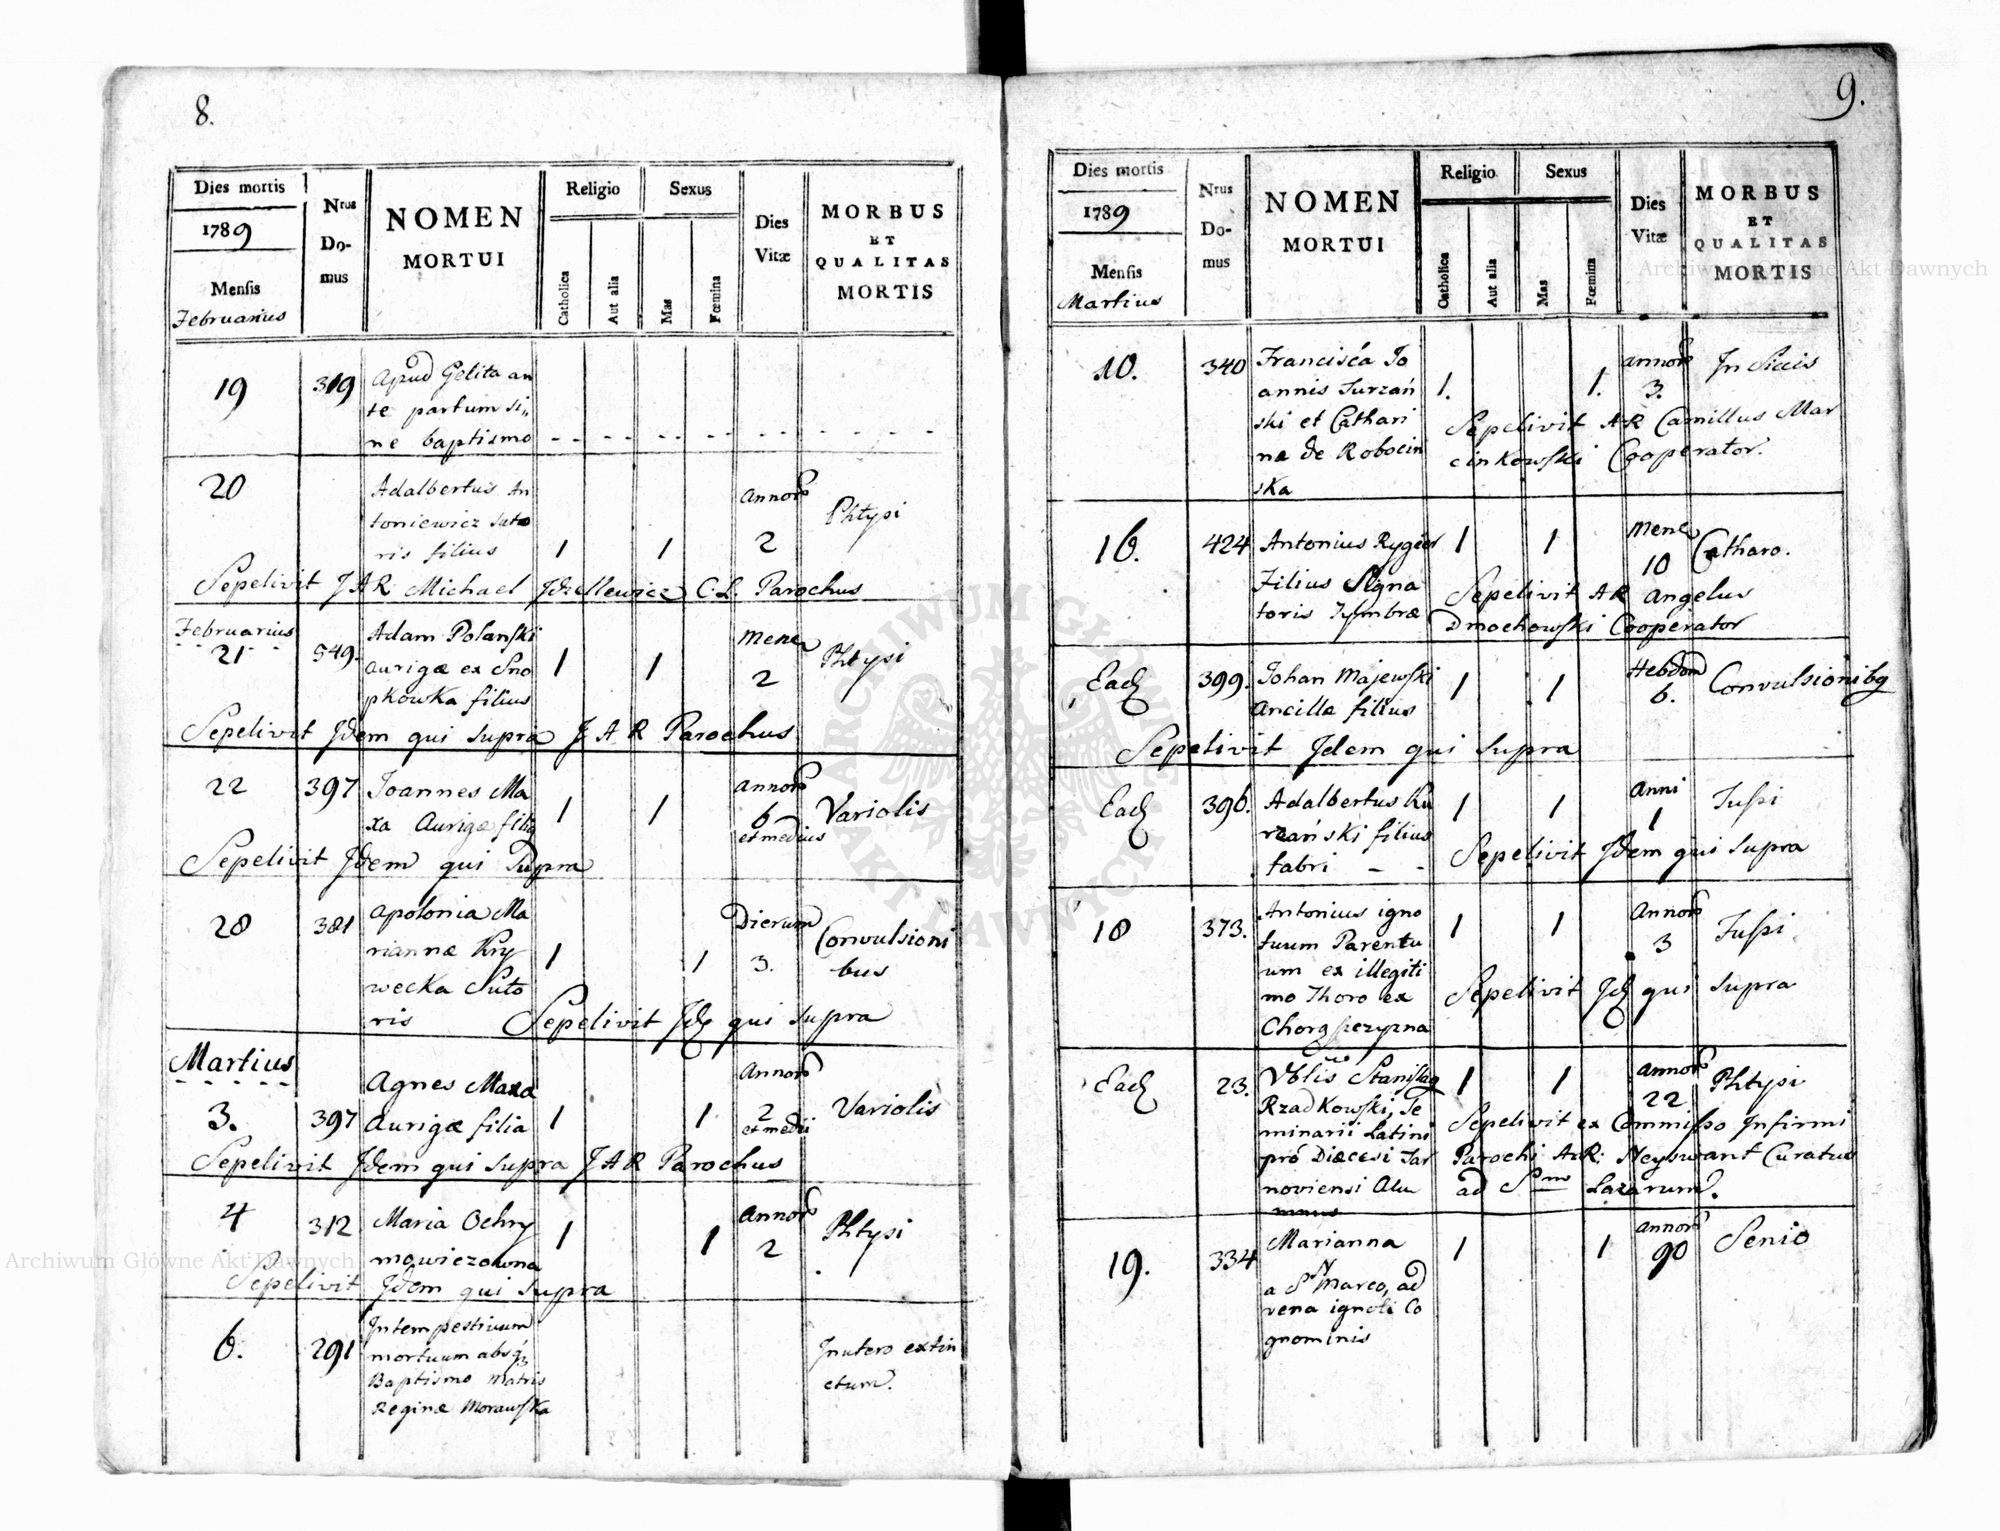 8.
Dies mortis
1789
Mensis
Februarius
Nrus
Do-
mus
NOMEN
MORTUI
Religio
Catholica
Aut alia
Sexus
Mas
Fœmina
Dies
Vitæ
MORBUS
ET
QUALITAS
MORTIS
19 319 Apud Gelita an
te partum si,,
ne baptismo
20 Adalbertus An
toniewicz suto
ris filius 1 1 Annor 2 Phtysi
Sepelivit J A R Michael C. L. Parochus
Februarius
21 549. Adam Polanski
Aurigæ ex Sno
pkowka filius 1 1 Mens 2 Phtysi
Sepelivit Jdem qui supra J A R Parochus
22 397 Joannes Ma
xa Aurigæ filiq 1 1 annor 6 et medius Variolis
Sepelivit Jdem qui Supra
28 381 Apolonia Ma
riannæ Kry
wecka Suto
ris 1 1 Dierum 3. Convulsioni
bus
Sepelivit Jd qui supra
Martius
3. 397 Agnes Maxa
Aurigæ filia 1 1 Annor 2 et medii Variolis
Sepelivit Jdem qui supra J A R Parochus
4 312 Maria Ochry
mowiczowna 1 1 Annor 2 Phtysi
Sepelivit Jdem qui supra
6. 291 Intempestivum
mortuum absq
Baptismo Matris
Reginæ Morawska
Jnutero extin
ctum.
9.
Dies mortis
1789
Mensis
Martius
Nrus
Do-
mus
NOMEN
MORTUI
Religio
Catholica
Aut alia
Sexus
Mas
Fœmina
Dies
Vitæ
MORBUS
ET
QUALITAS
MORTIS
10. 340 Francisca Jo
annis Surzań
ski et Cathari
næ de Robocin
ska 1. 1. annor 3.
Sepelivit AR Camillus Mar
cinkowski Cooperator.
16. 424 Antonius Rygier
Filius Signa
toris Tymbræ 1 1 Mens 10 Catharo.
Sepelivit AR Angelus
Dmochowski Cooperator
Ead 399. Johan Majewski
Ancillæ filius 1 1 Hebdom 6. Convulsionibq
Sepelivit Jdem qui supra
Ead 396. Adalbertus Ku
rzański filius
fabri - - 1 1 Anni 1 Tussi
Sepelivit Jdem qui supra
18 373. Antonius igno
tuum Parentu
um ex illegiti
mo Thoro ex 1 1 Annor 3 Tussi
Sepelivit Jd qui supra
Ead 23. Stanislaq
Rzadkowski, Se
minarii Latini
pró Diæcesi Tar
noviensi Alu
mnus 1 1 annor 22 Phtysi
Sepelivit ex Commisso Infirmi
Parochi A.R: Neyswant Curatus
ad Smo Lazarum.
19. 334 Marianna
a S Marco, ad
vena ignoti Co
gnominis 1 1 annor 90 Senio
Archiwum Główne Akt Dawnych
Archiwum Główne Akt Dawnych
ARCHIWUM GŁÓWNE AKT DAWNYCH